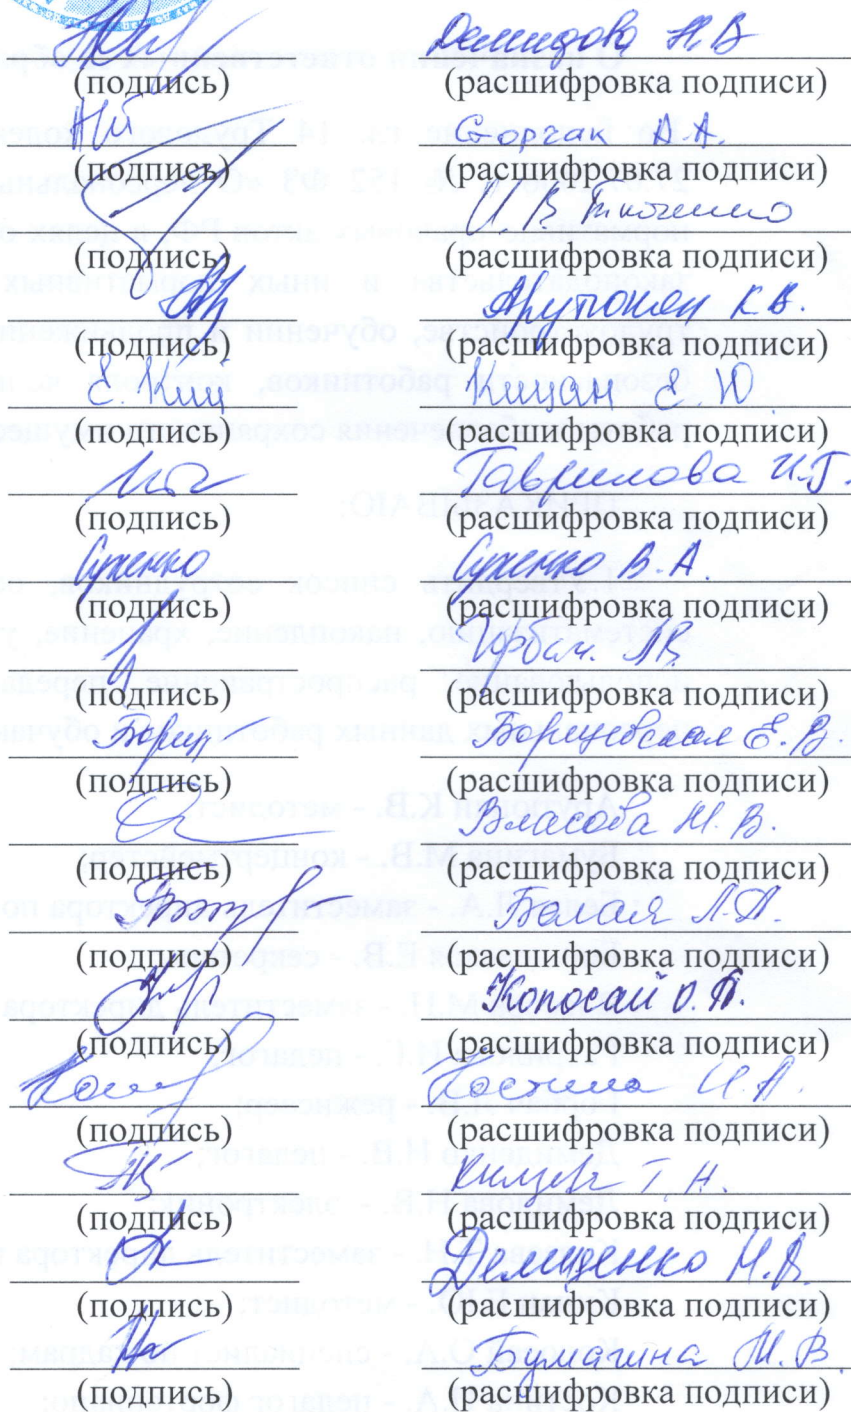 Демидова Н.В
(подпись) (расшифровка подписи)
Сворчак А.А.
(подпись) (расшифровка подписи)
И В Ткаченко
(подпись) (расшифровка подписи)
Арутюнян К.В.
(подпись) (расшифровка подписи)
Е. Киц Кицан Е Ю
(подпись) (расшифровка подписи)
Гаврилова И.Г.
(подпись) (расшифровка подписи)
Сухенко Сухенко В.А.
(подпись) (расшифровка подписи)
(подпись) (расшифровка подписи)
Борщ Борщевская Е.В.
(подпись) (расшифровка подписи)
Власова М.В.
(подпись) (расшифровка подписи)
Белая Л.А.
(подпись) (расшифровка подписи)
Копосай О.А.
(подпись) (расшифровка подписи)
Костина И.А.
(подпись) (расшифровка подписи)
Т.Н.
(подпись) (расшифровка подписи)
Демиденко Н.В.
(подпись) (расшифровка подписи)
Бумагина М.В.
(подпись) (расшифровка подписи)